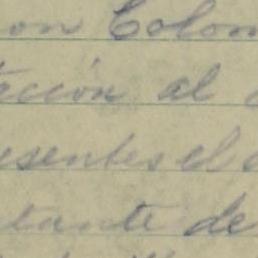 on Colom
tación al
esentes el
tante de